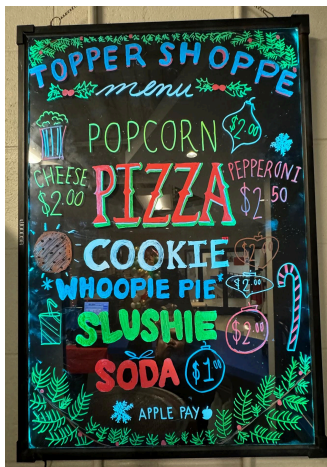 TOPPER SHOPPE
menu
POPCORN $2.00
CHEESE $2.00 PIZZA PEPPERONI $2.50
COOKIE
*WHOOPIE PIE* $2.00
SLUSHIE $2.00
SODA $1.00
APPLE PAY